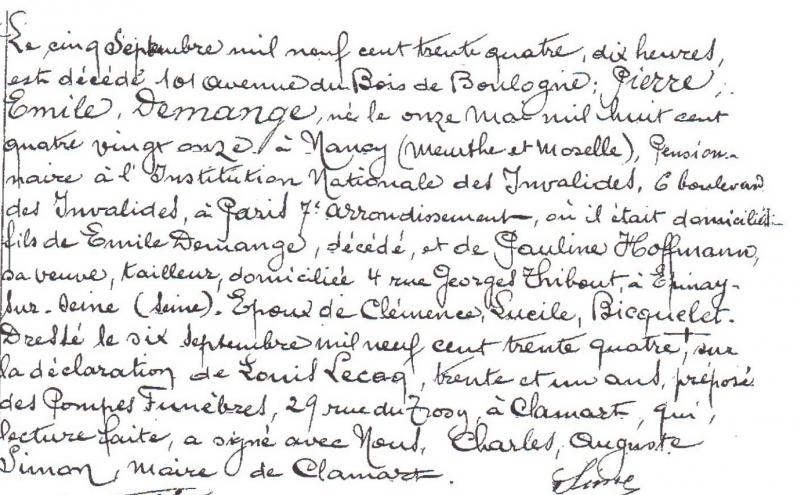 Le cinq Septembre mil neuf cent trente quatre, dix heures,
est décédé 101 avenue du Bois de Boulogne, Pierre,
Emile, Demange, né le onze Mai mil huit cent
quatre vingt onze à Nancy (Meurthe et Moselle), Pension-
naire à l'Institution Nationale des Invalides, 6 boulevard
des Invalides, à Paris 7e arrondissement, où il était domicilié
fils de Emile Demange, décédé, et de Pauline Hoffmann,
sa veuve, tailleur, domiciliée 4 rue Georges Thibout, à Epinay-
sur-Seine (Seine). Epoux de Clémence, Lucile, Bicquelet.
Dressé le six Septembre mil neuf cent trente quatre, sur
la déclaration de Louis Lecoq, trente et un ans, préposé
des Pompes Funèbres, 29 rue du Trosy, à Clamart, qui,
lecture faite, a signé avec Nous, Charles, Auguste
Simon, Maire de Clamart.